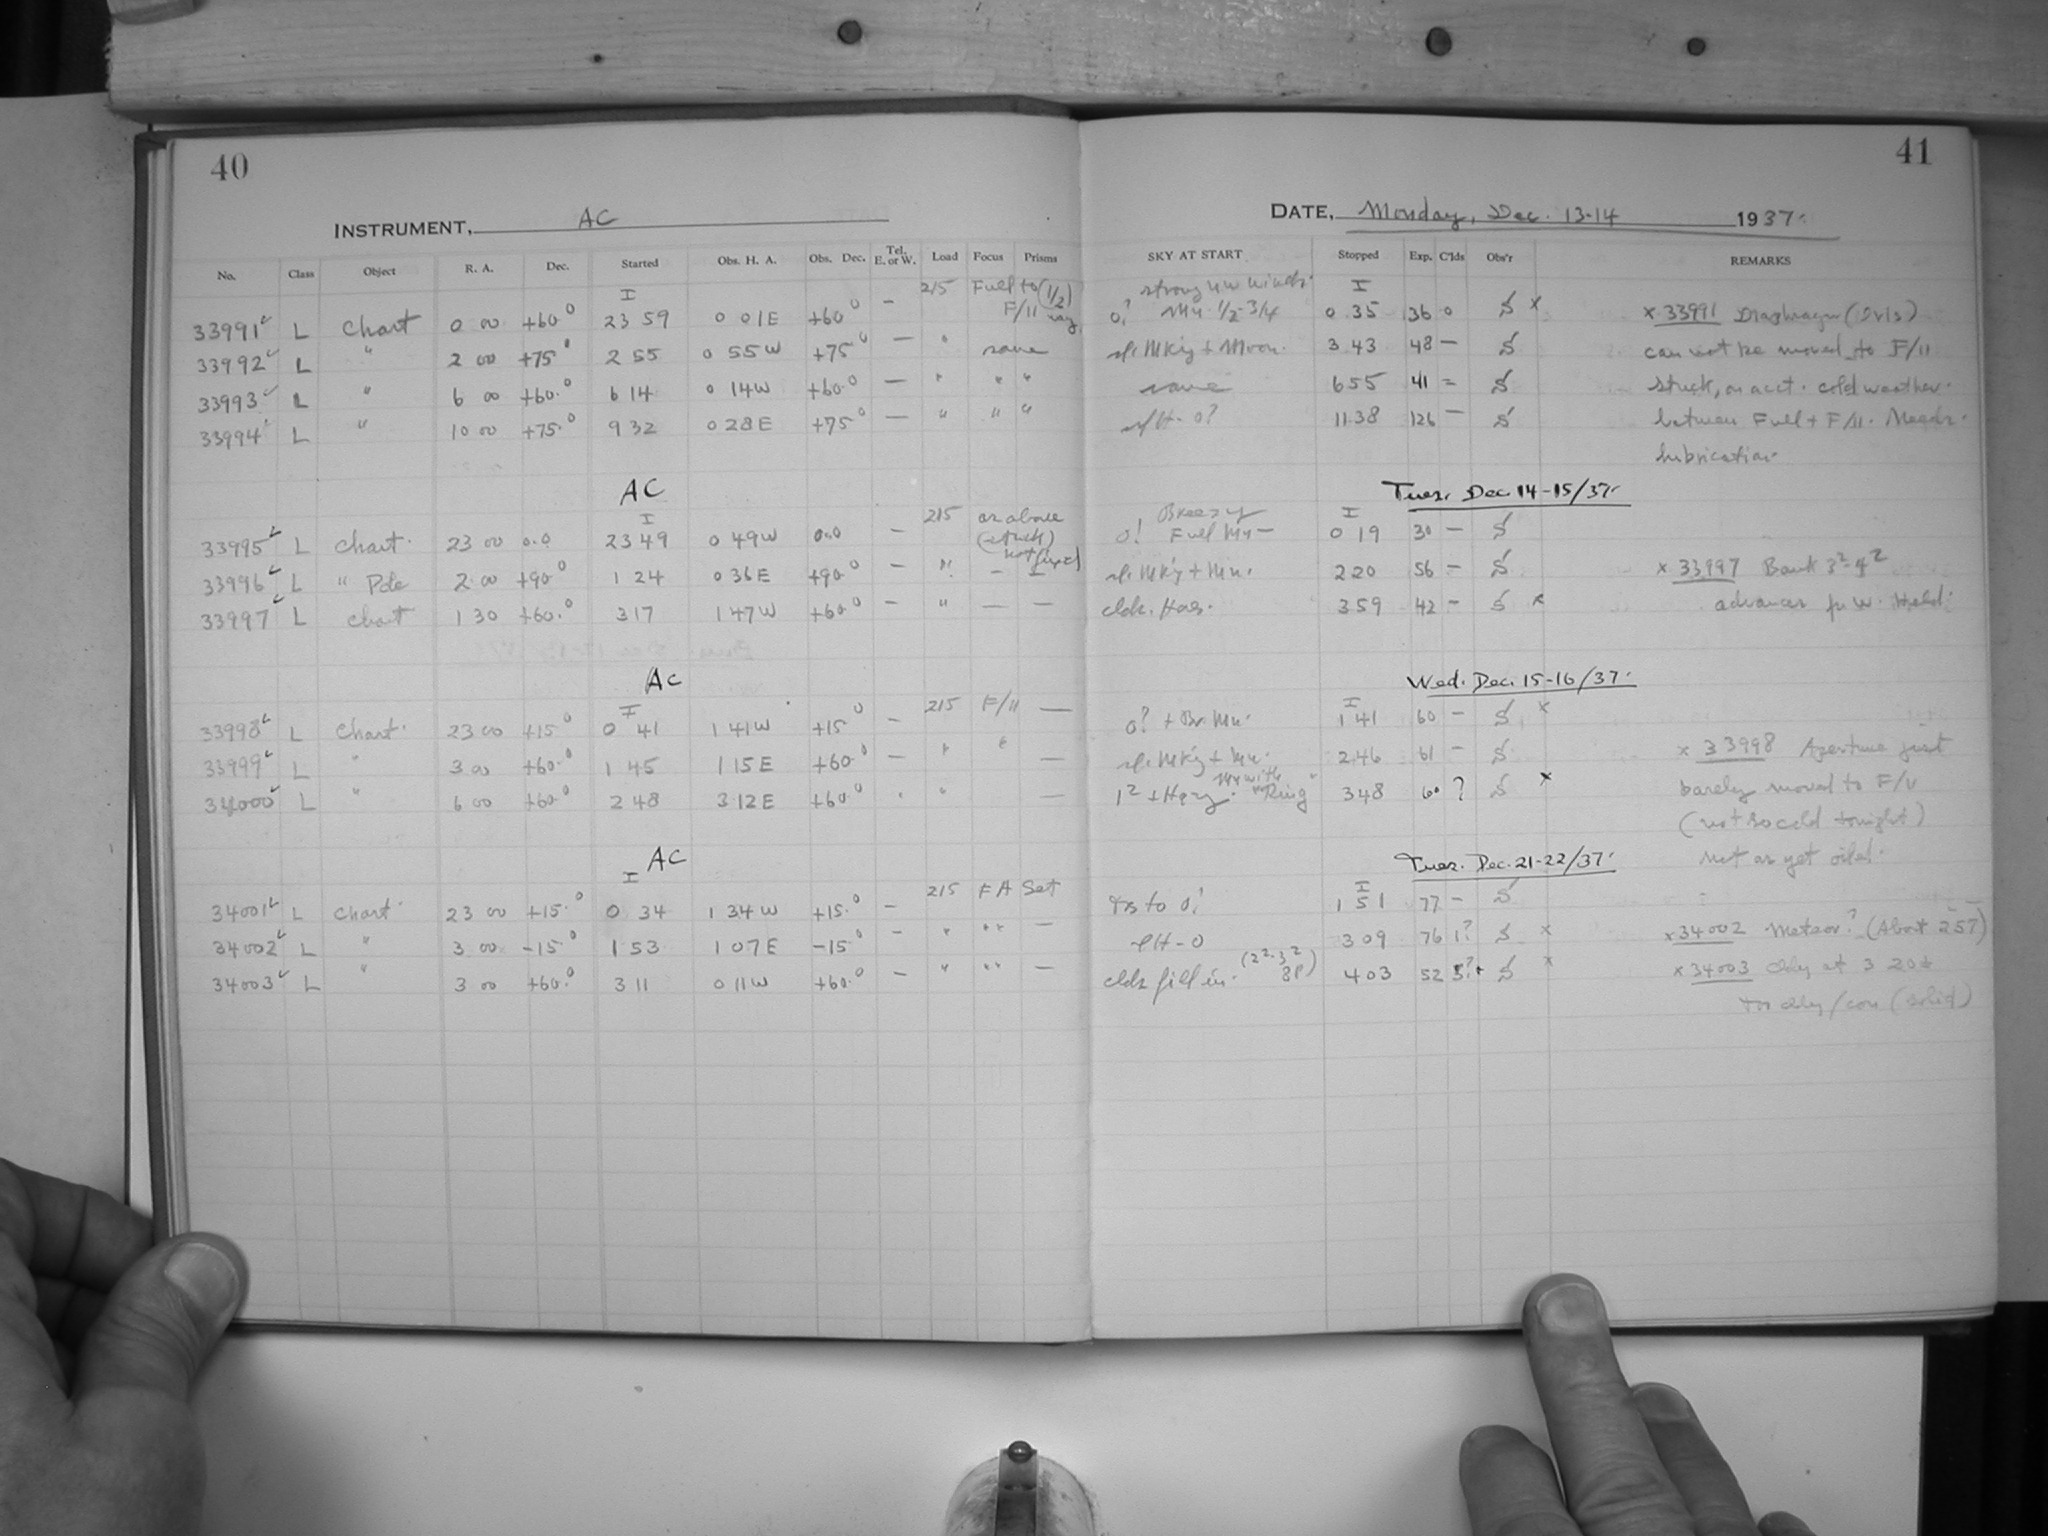 40
INSTRUMENT, AC
No. Class Object R. A. Dec. Started Obs. H. A. Obs. Dec. Tel. E. or W. Load Focus Prisms
I 215 Full to (1/2)
33991 L Chart 0 00 +60.0 23 59 0 01E +60 0 — F/11
33992 L " 2 00 +75 0 2 55 0 55W +75 0 — " same
33993 L " 6 00 +60.0 6 14 0 14W +60.0 — " " "
33994 L " 10 00 +75.0 9 32 0 28E +75 0 — " " "
AC
I 215 as above
33995 L Chart. 23 00 0.0 23 49 0 49W 0.0 — (stuck)
not fixed
33996 L " Pole 2 00 +90 0 1 24 0 36E +90 0 — " —
33997 L Chart 1 30 +60.0 3 17 1 47W +60.0 — " — —
AC
I 215 F/11 —
33998 L Chart. 23 00 +15 0 0 41 1 41W +15 0 —
33999 L " 3 00 +60.0 1 45 1 15E +60 0 — " " —
34000 L " 6 00 +60.0 2 48 3 12E +60 0 " " —
AC
I 215 FA Set
34001 L Chart. 23 00 +15.0 0 34 1 34W +15.0 —
34002 L " 3 00 -15 0 1 53 1 07E -15 0 — " " —
34003 L " 3 00 +60.0 3 11 0 11W +60.0 — " " —
41
DATE, Monday, Dec. 13-14 1937.
SKY AT START Stopped Exp. C'lds Obs'r REMARKS
strong NW winds. I
0? Mn. 1/2-3/4 0 35 36 0 S x x 33991 Diaphragm (Iris)
sl. Mky + Moon. 3.43 48 — S can not be moved to F/11
same 6 55 41 — S stuck, on acct. cold weather.
sl H-0? 11.38 126 — S between Full + F/11. Needs.
lubrication.
Tues. Dec. 14-15/37.
Breezy I
0! Full Mn — 0 19 30 — S
sl. Mky + Mn. 2 20 56 — S x 33997 Bank 3²-4²
cldr. Hor. 3 59 42 — S x advances fr W. Held.
Wed. Dec. 15-16/37.
I
0? + Br. Mn. 1 41 60 — S x
sl. Mky + Mn. 2 46 61 — S x 33998 Aperture just
1² + Hazy. Mn with "Ring" 3 48 60 ? S x barely moved to F/11
(not so cold tonight)
Tues. Dec. 21-22/37. not as yet oiled.
I
to 0! 1 51 77 — S
sl H-0 3 09 76 1? S x x 34002 Meteor? (About 2 57)
cldr fill in. (2².3² 8P) 4 03 52 5? S x x 34003 Cldy at 3 20±
cldy / con (solid)